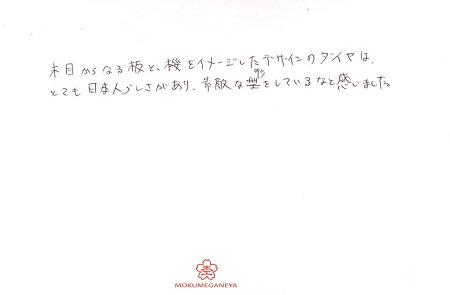 木目からなる板と、桜をイメージしたデザインのダイヤは、
とても日本人らしさがあり、素敵な型をしているなと感じました。
MOKUMEGANEYA